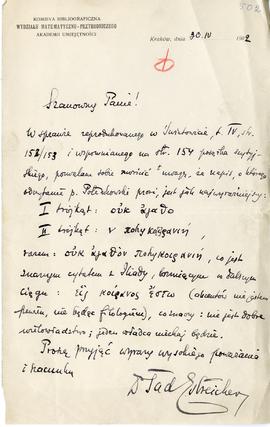 502
KOMISYA BIBLIOGRAFICZNA
WYDZIAŁU MATEMATYCZNO-PRZYRODNICZEGO
AKADEMII UMIEJĘTNOŚCI
Kraków, dnia 30.IV 1902
Szanowny Panie!
W sprawie reprodukowanego w Światowicie, t. IV, str.
152/153 i wspomnianego na str. 154 posążka
pozwalam sobie zwrócić uwagę, że napis, o którego
p. prosi, jest jak najwyraźniejszy:
I trójkąt: οὐκ ἀγαθο
II trójkąt: ν πολυκοιρανιη
razem: οὐκ ἀγαθὸν πολυκοιρανιη, co jest
znanym cytatem z Iliady, brzmiącym w dalszym
ciągu: εἷς κοίρανος ἔστω (akcentów nie jestem
pewny, nie będąc filologiem), co znaczy: nie jest dobre
wielowładztwo; jeden władca niechaj będzie.
Proszę przyjąć wyrazy wysokiego poważania
i szacunku
Dr Tad Estreicher